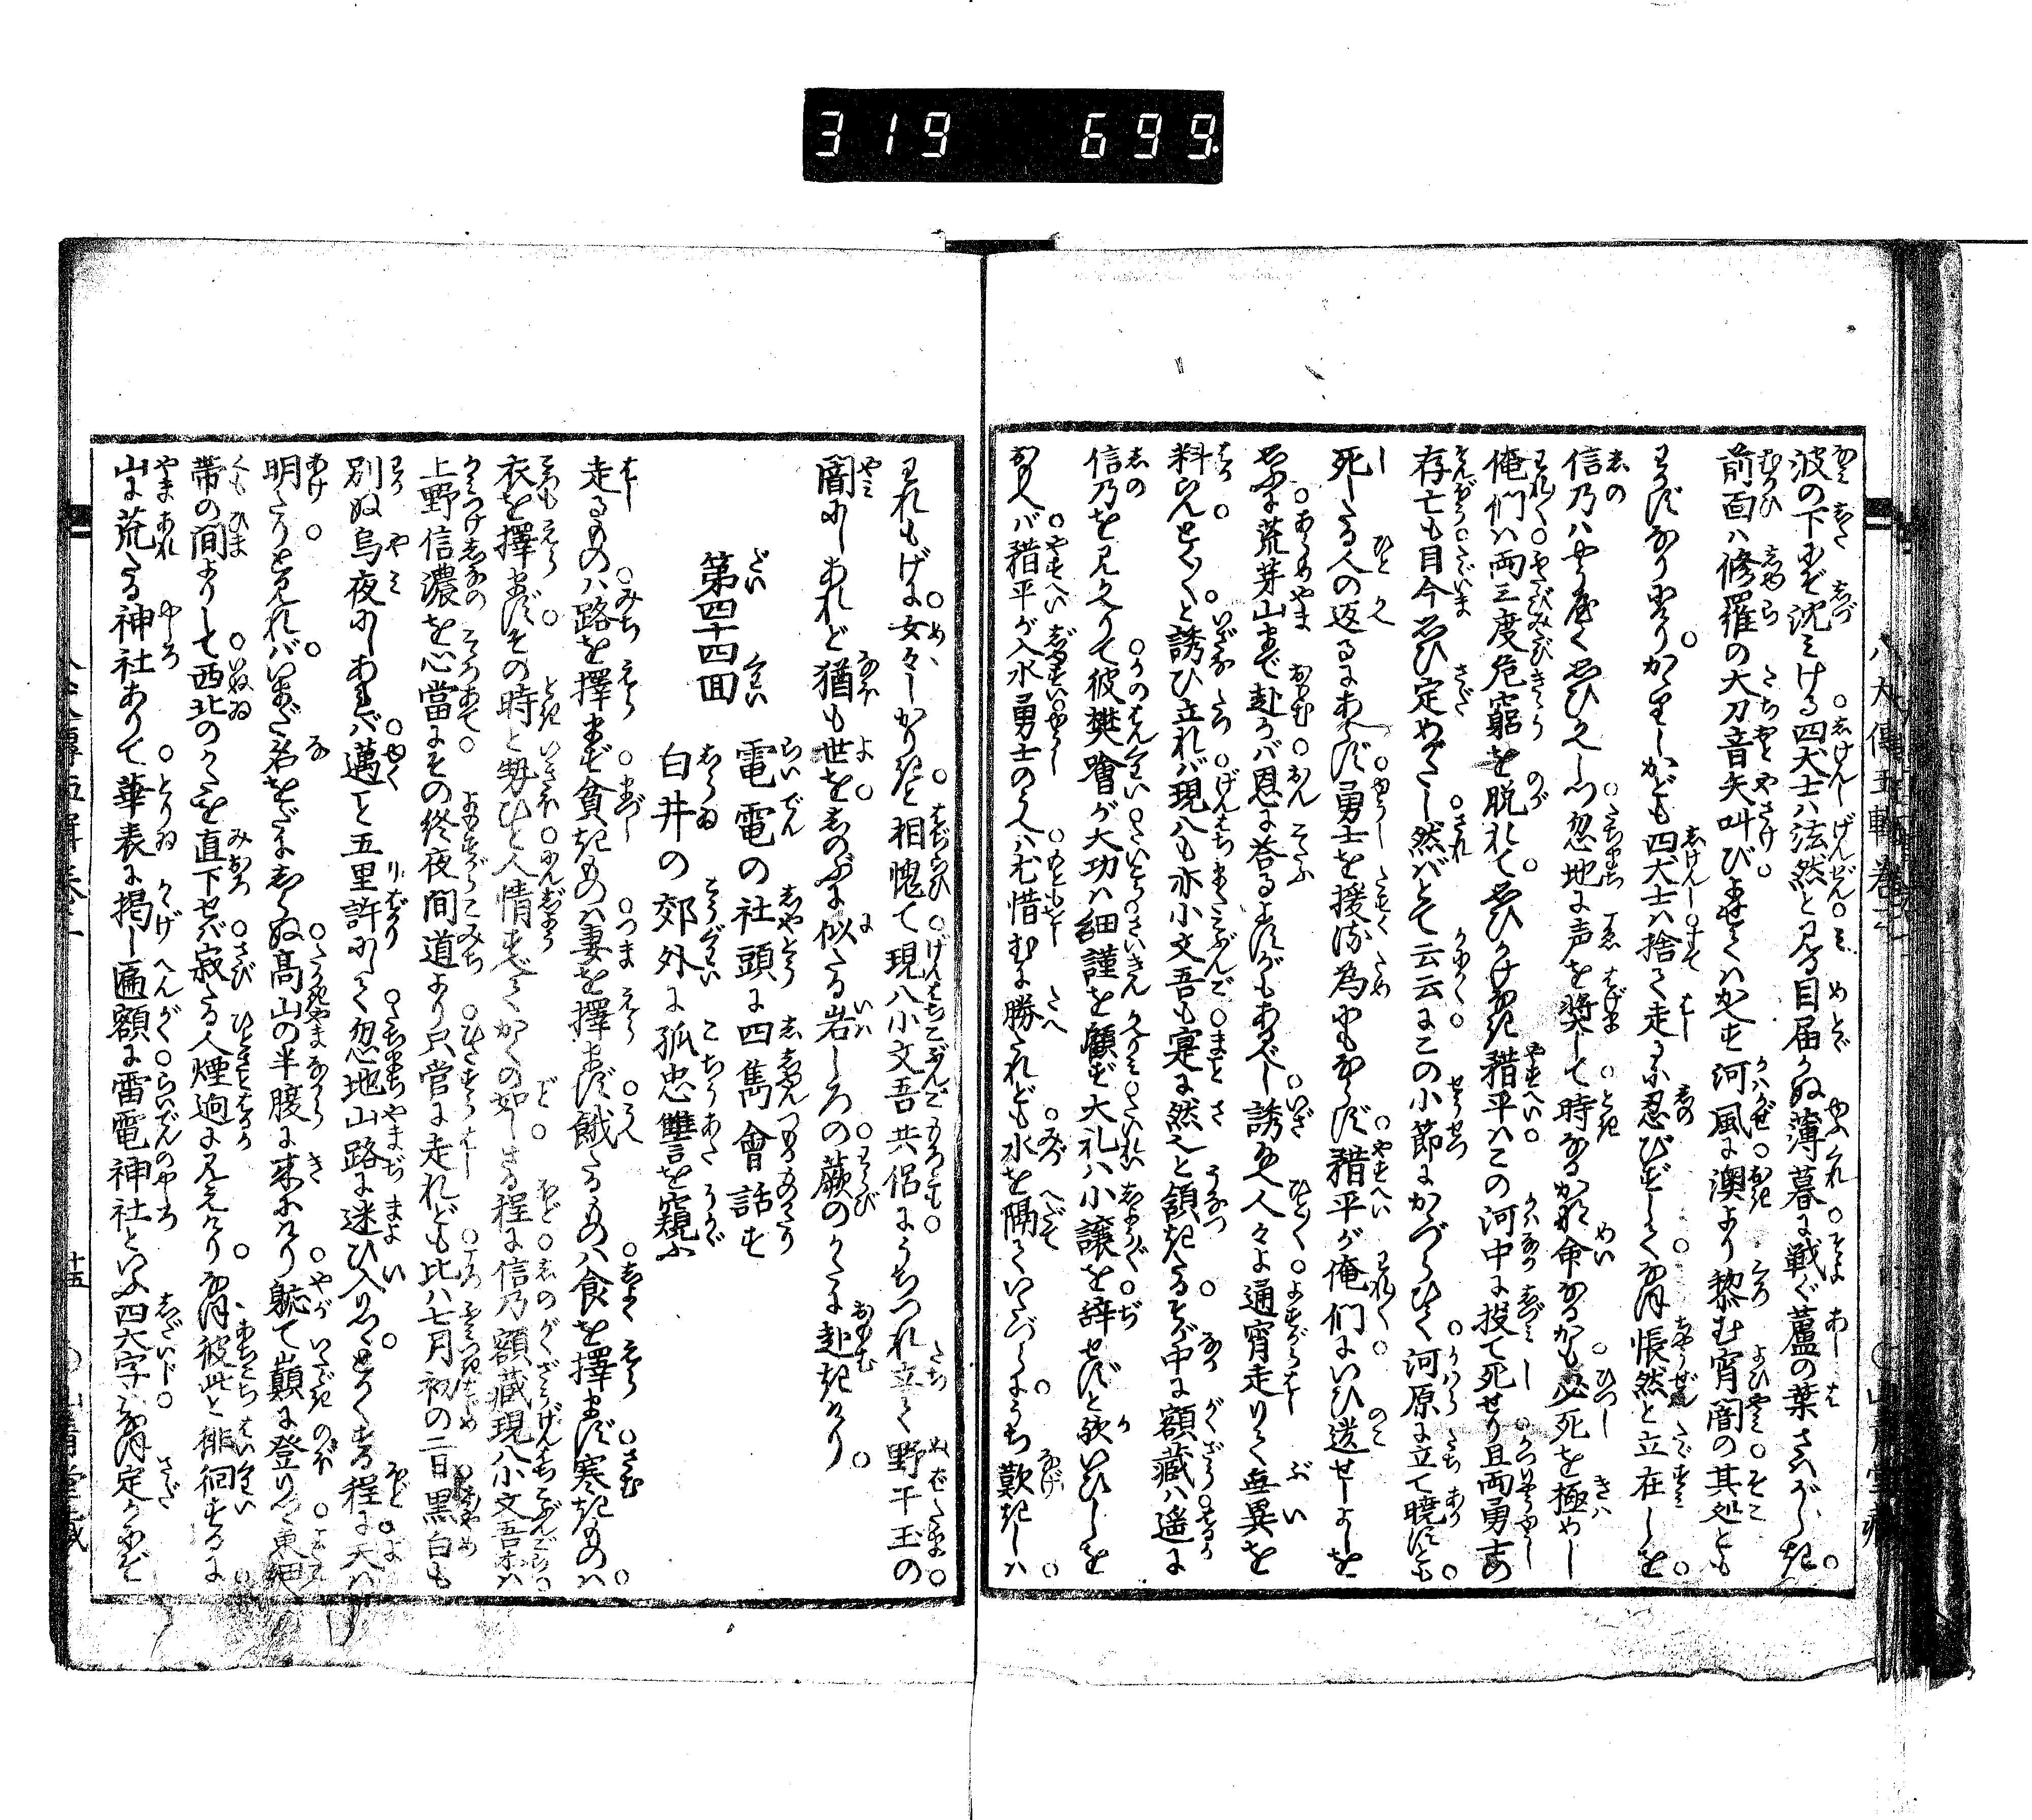 319 699
八犬傳五輯卷二
波の下まで沈みける四犬士ハ法然と見る目届かぬ薄暮に戦ぐ蘆の葉さわがしき
前面ハ修羅の大刀音矢叫びまぜくハかへす河風に澳より黎む宵闇の其処とも
わかずなりにけりかゝりしかども四犬士ハ捨て走るに忍びずしてなほ悵然と立在しを
信乃ハやうやく思ひかへしつ忽地に声を奬して時なるかな命なるかも必死を極めし
俺們ハ両三度危窮を脱れて思ひかけなき𤢖平ハこの河中に投て死せり且両勇士の
存亡も目今思ひ定めがたし然バとて云云にこの小節にかゝづらひて河原に立て曉すとも
死したる人の返るにあらず勇士を援る為にもならず𤢖平が俺們にいひ送せしよしを
思ふに荒芽山まで赴かバ恩に答るよすがもあるべし誘給へ人々よ通宵走りて無異を
料らんとくとくと誘ひ立れバ現八も亦小文吾も寔に然也と領きたるそが中に額藏ハ遙に
信乃を見かへりて彼樊噲が大功ハ細謹を顧ず大礼ハ小讓を辞せずと歟いひしを
おもへバ𤢖平が入水勇士のうへハ尤惜むに勝たれども水を隔ていたづらにうち歎きしハ
われもげに女々しかりきと相愧て現八小文吾共侶にうちつれ立て野干玉の
闇にしあれど猶も世をしのぶに似たる岩しろの蕨のかたに赴きけり
第四十四回
雷電の社頭に四雋會話す
白井の郊外に孤忠讐を窺ふ
走るものハ路を擇まず貧きものハ妻を擇まず餓たるものハ食を擇まず寒きものハ
衣を擇まずその時と勢ひと人情すべてかくの如しさる程に信乃額藏現八小文吾等ハ
上野信濃を心當にその終夜間道より只管に走れども比ハ七月初の二日黒白も
別ぬ烏夜にしあれバ邁こと五里許にして忽地山路に迷ひ入りつとかくする程に天ハ
明たりと見れバいまだ名をだにしらぬ高山の半腹に來にけり軈て巓に登りて東細の
帯の間よりして西北のかたを直下せバ寂たる人煙逈に見えけりなほ彼此と徘徊するに
山に荒たる神社ありて華表に掲し匾額に雷電神社といふ四大字なほ定かなれど
十五